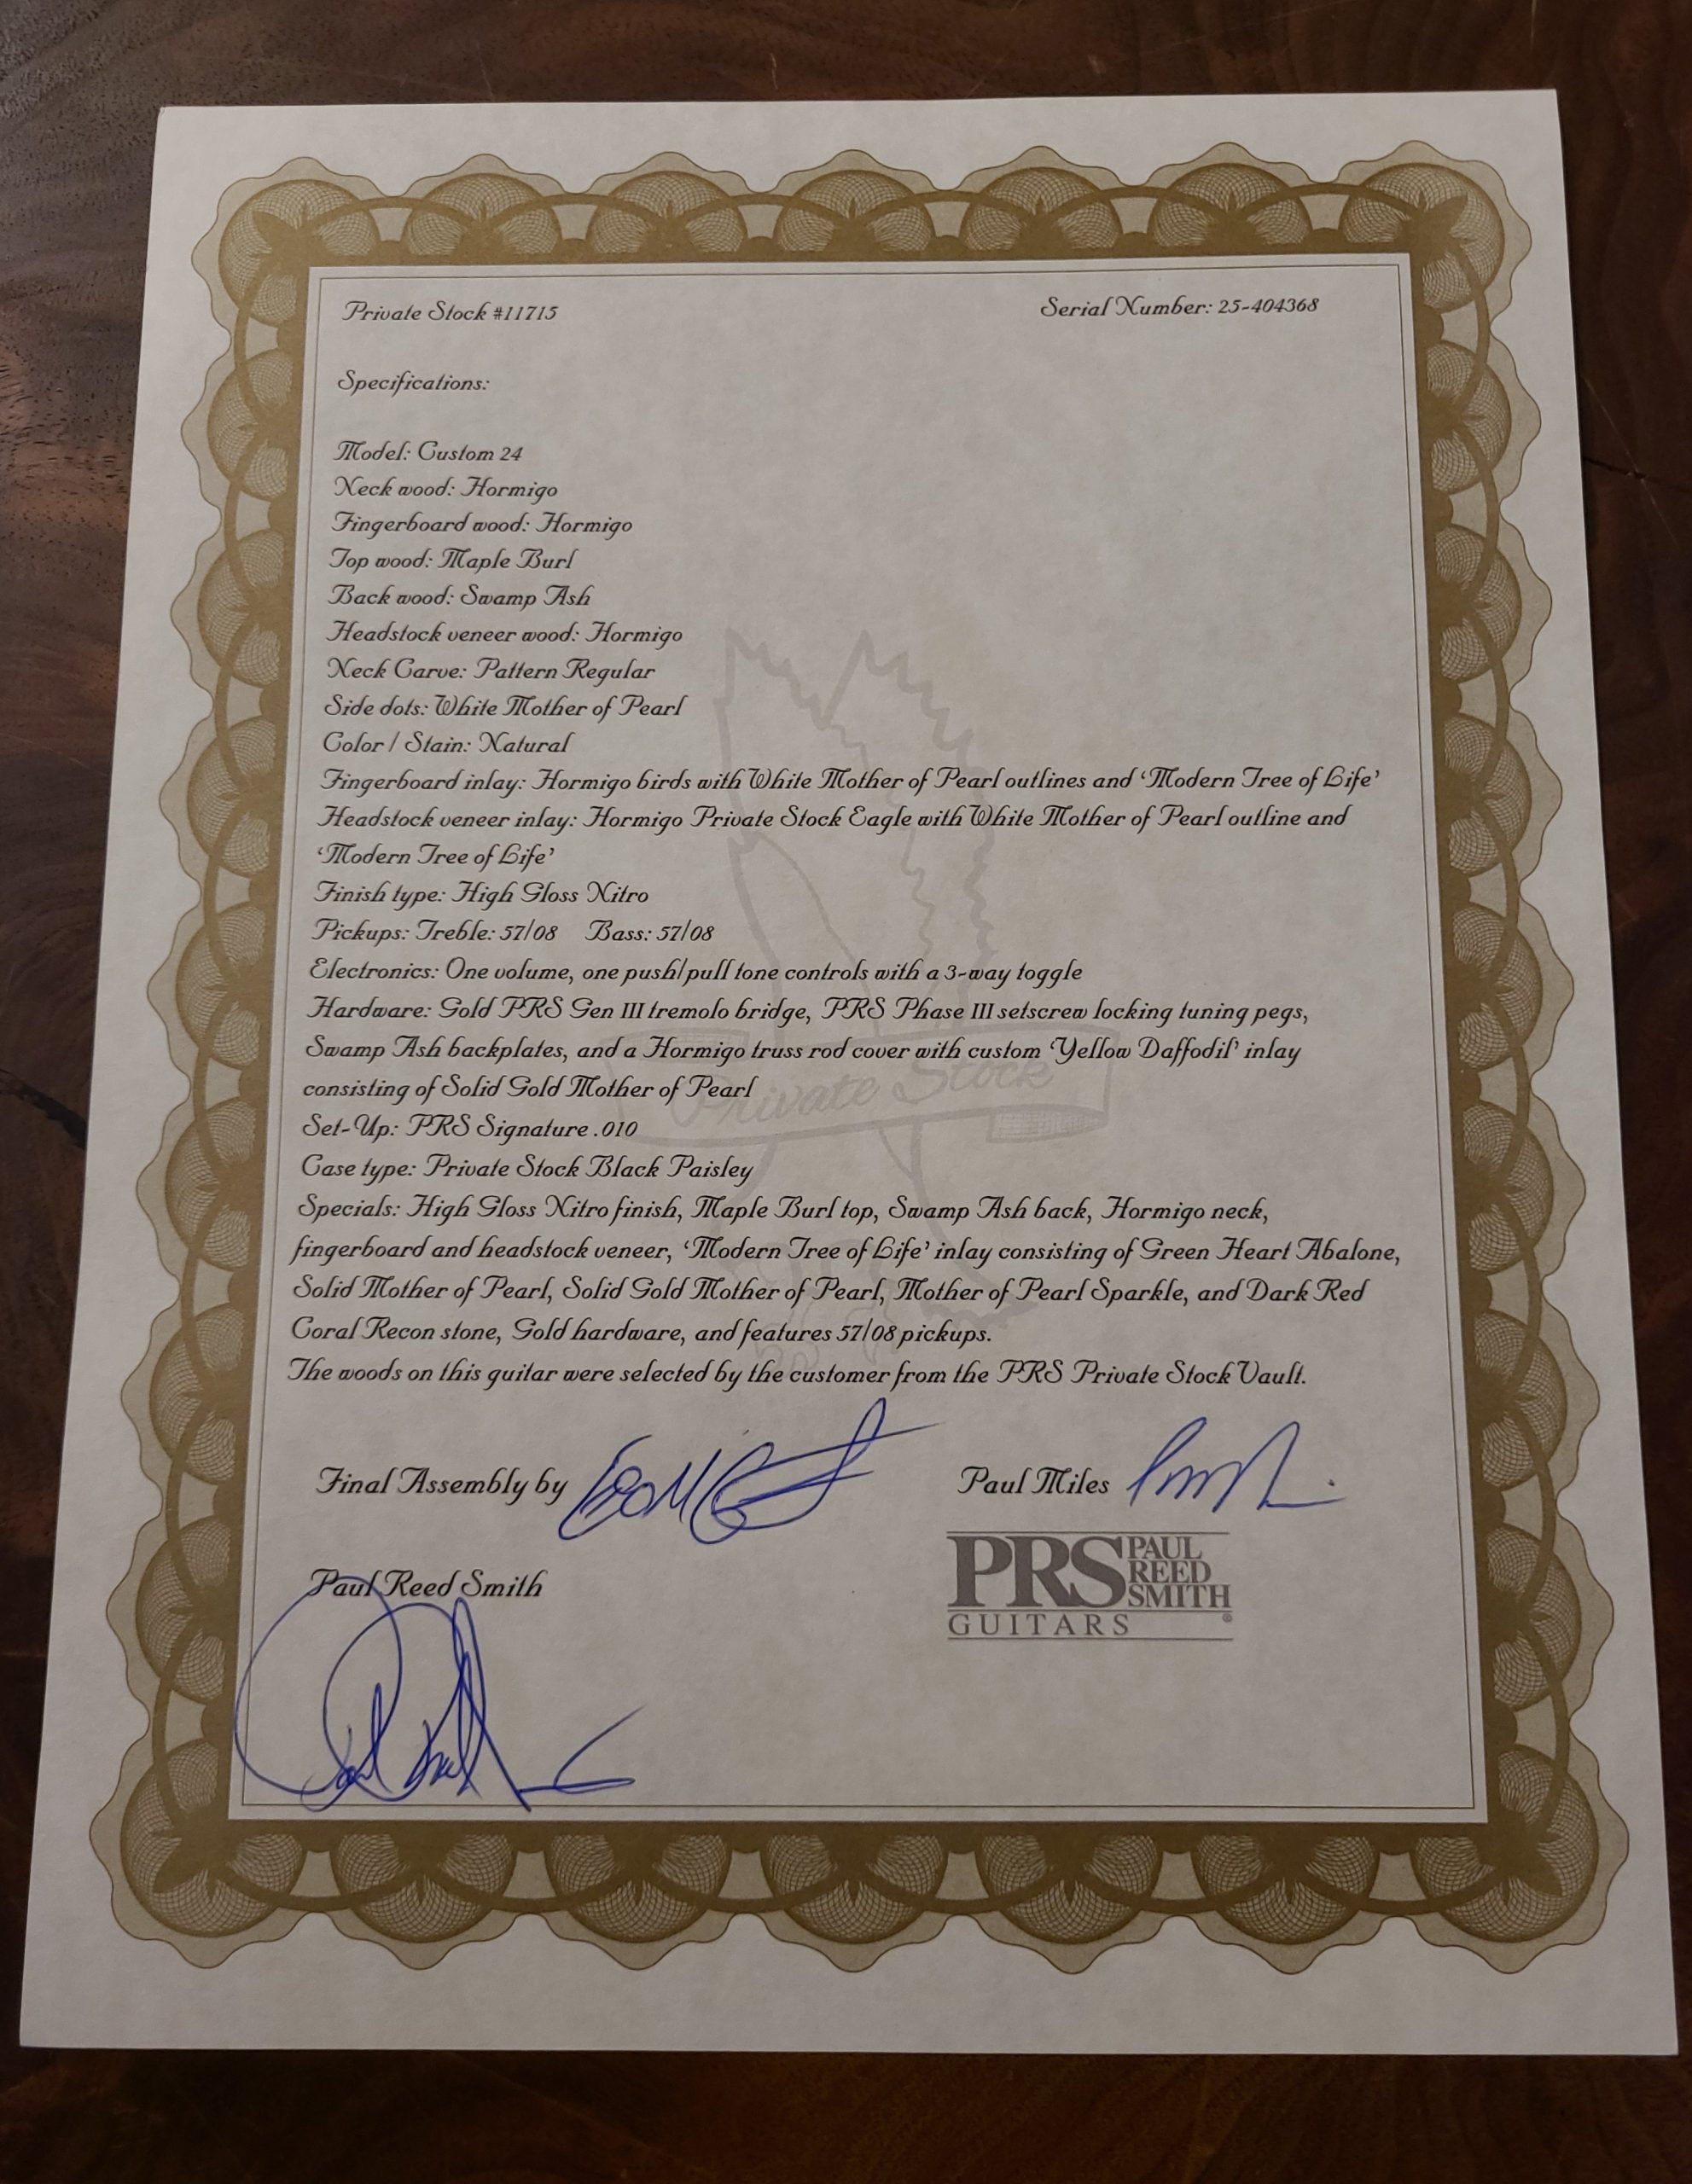 Private Stock #11715
Serial Number: 25-404368
Specifications:
Model: Custom 24
Neck wood: Hormigo
Fingerboard wood: Hormigo
Top wood: Maple Burl
Back wood: Swamp Ash
Headstock veneer wood: Hormigo
Neck Carve: Pattern Regular
Side dots: White Mother of Pearl
Color / Stain: Natural
Fingerboard inlay: Hormigo birds with White Mother of Pearl outlines and ‘Modern Tree of Life’
Headstock veneer inlay: Hormigo Private Stock Eagle with White Mother of Pearl outline and
‘Modern Tree of Life’
Finish type: High Gloss Nitro
Pickups: Treble: 57/08 Bass: 57/08
Electronics: One volume, one push/pull tone controls with a 3-way toggle
Hardware: Gold PRS Gen III tremolo bridge, PRS Phase III setscrew locking tuning pegs,
Swamp Ash backplates, and a Hormigo truss rod cover with custom ‘Yellow Daffodil’ inlay
consisting of Solid Gold Mother of Pearl
Private Stock
Set-Up: PRS Signature .010
Case type: Private Stock Black Paisley
Specials: High Gloss Nitro finish, Maple Burl top, Swamp Ash back, Hormigo neck,
fingerboard and headstock veneer, ‘Modern Tree of Life’ inlay consisting of Green Heart Abalone,
Solid Mother of Pearl, Solid Gold Mother of Pearl, Mother of Pearl Sparkle, and Dark Red
Coral Recon stone, Gold hardware, and features 57/08 pickups.
The woods on this guitar were selected by the customer from the PRS Private Stock Vault.
Final Assembly by
Paul Miles
Paul Reed Smith
PRS PAUL REED SMITH
GUITARS ®